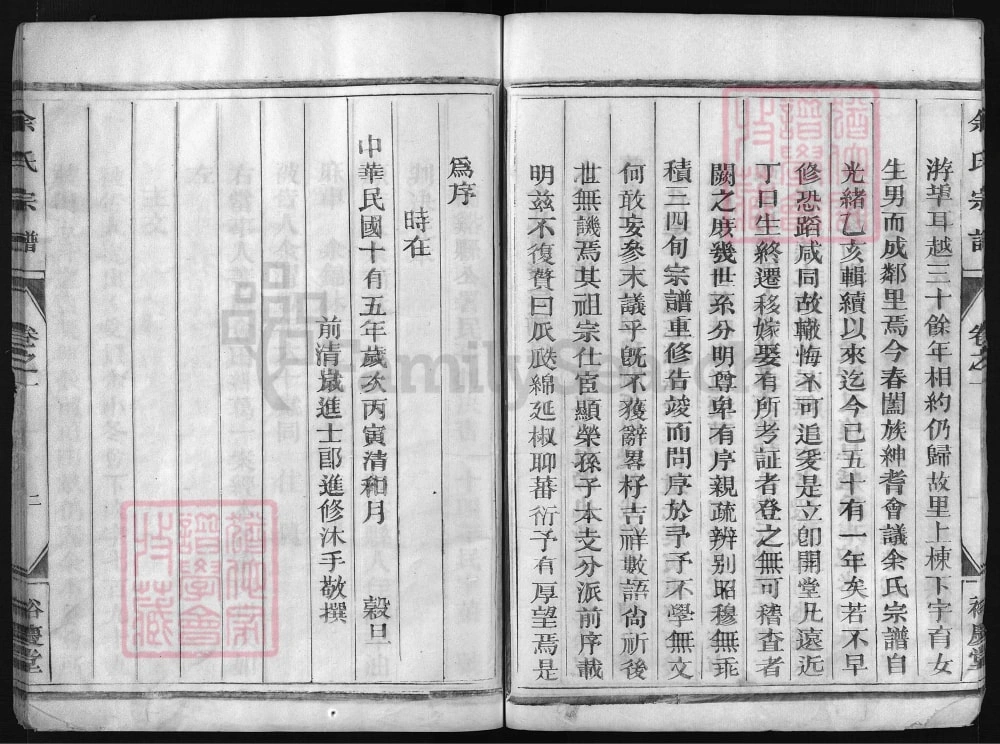 游萍耳越三十餘年相約仍歸故里上棟下宇育女
生男而成鄰里焉今春闔族紳耆會議余氏宗譜自
光緒乙亥輯續以來迄今已五十有一年矣若不早
修恐蹈咸同故轍悔不可追爰是立卽開堂凡遠近
丁口生終遷移嫁娶有所考証者登之無可稽查者
闕之庶幾世系分明尊卑有序親疏辨別昭穆無乖
積三四旬宗譜重修告竣而問序於予予不學無文
何敢妄參末議乎旣不獲辭畧杼吉祥數語尙祈後
世無譏焉其祖宗仕宦顯榮孫子本支分派前序載
明兹不復贅曰瓜瓞綿延椒聊蕃衍予有厚望焉是
爲序
時在
中華民國十有五年歲次丙寅清和月 穀旦
前清歲進士郎進修沐手敬撰
余氏宗譜
卷之一
二
裕慶堂
FamilySearch